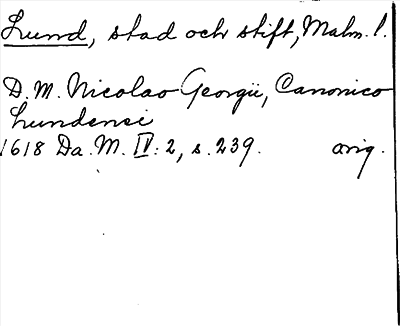 Lund, stad och stift, Malm. l.
D. M. Nicolao Georgii, Canonico
Lundensi
1618 Da. M. IV: 2, s. 239. orig.